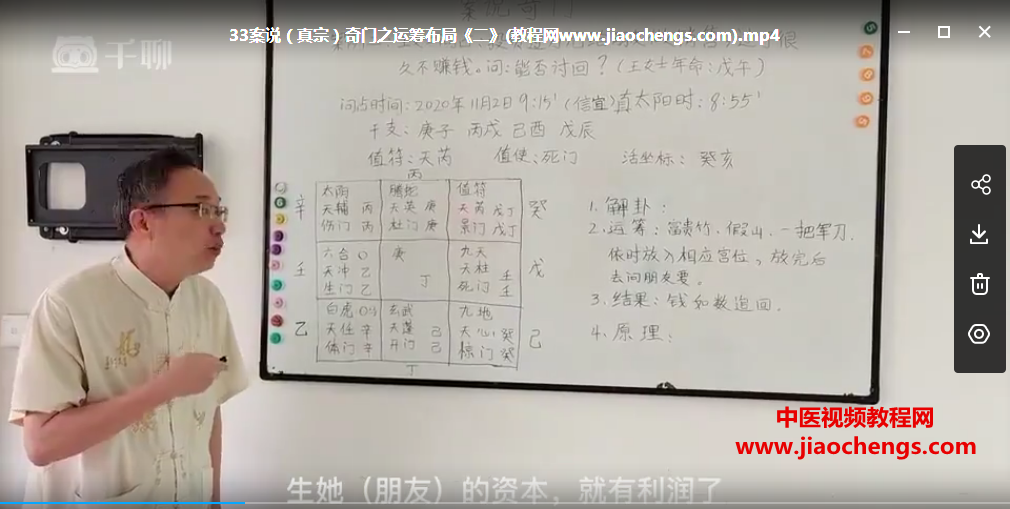 33案说（真宗）奇门之运筹布局《二》(教程网www.jiaochengs.com).mp4
千聊
案说奇门
久不赚钱。问:能否讨回？(王女士年命:戊午)
问占时间:2020年11月2日9:15'(信宜)真太阳时:8:55'
干支:庚子 丙戌 己酉 戊辰
值符:天芮 值使:死门 活坐标:癸亥
丙
太阴 螣蛇 值符
辛 天辅 丙 天英 庚 天芮 戊丁 癸
伤门 丙 杜门 庚 景门 戊丁
六合 庚 九天
壬 天冲 乙 丁 天柱 壬 戊
生门 乙 死门 壬
白虎 玄武 九地
乙 天任 辛 天蓬 己 天心 癸 己
休门 辛 开门 己 惊门 癸
丁
1.解卦:
2.运筹:富贵竹、假山、一把军刀.
依时放入相应宫位,放完后
去问朋友要。
3.结果:钱如数追回.
4.原理:
中医视频教程网
www.jiaochengs.com
生她（朋友）的资本，就有利润了